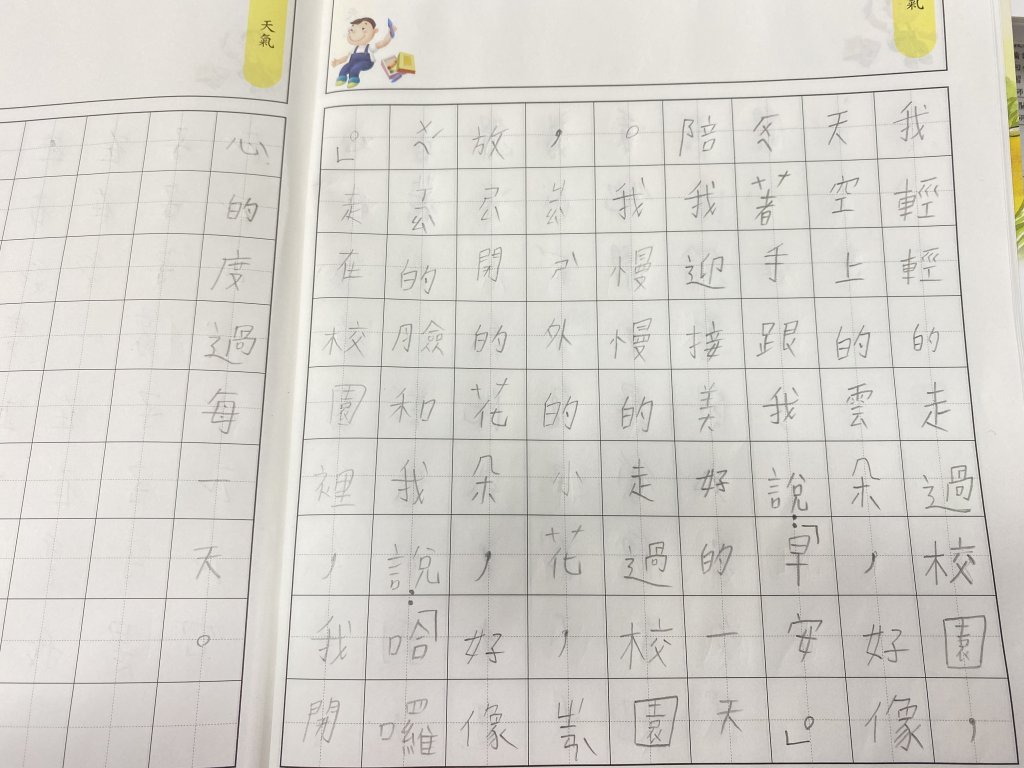 氣
我輕輕的走過校園，
天空上的雲朵，好像
著手跟我說：「早安。」
陪我迎接美好的一天
。我慢慢的走過校園
，外的小花，
放開的花朵，好像
的臉和我說：「哈囉
。」走在校園裡，我開
天氣
心的度過每一天。